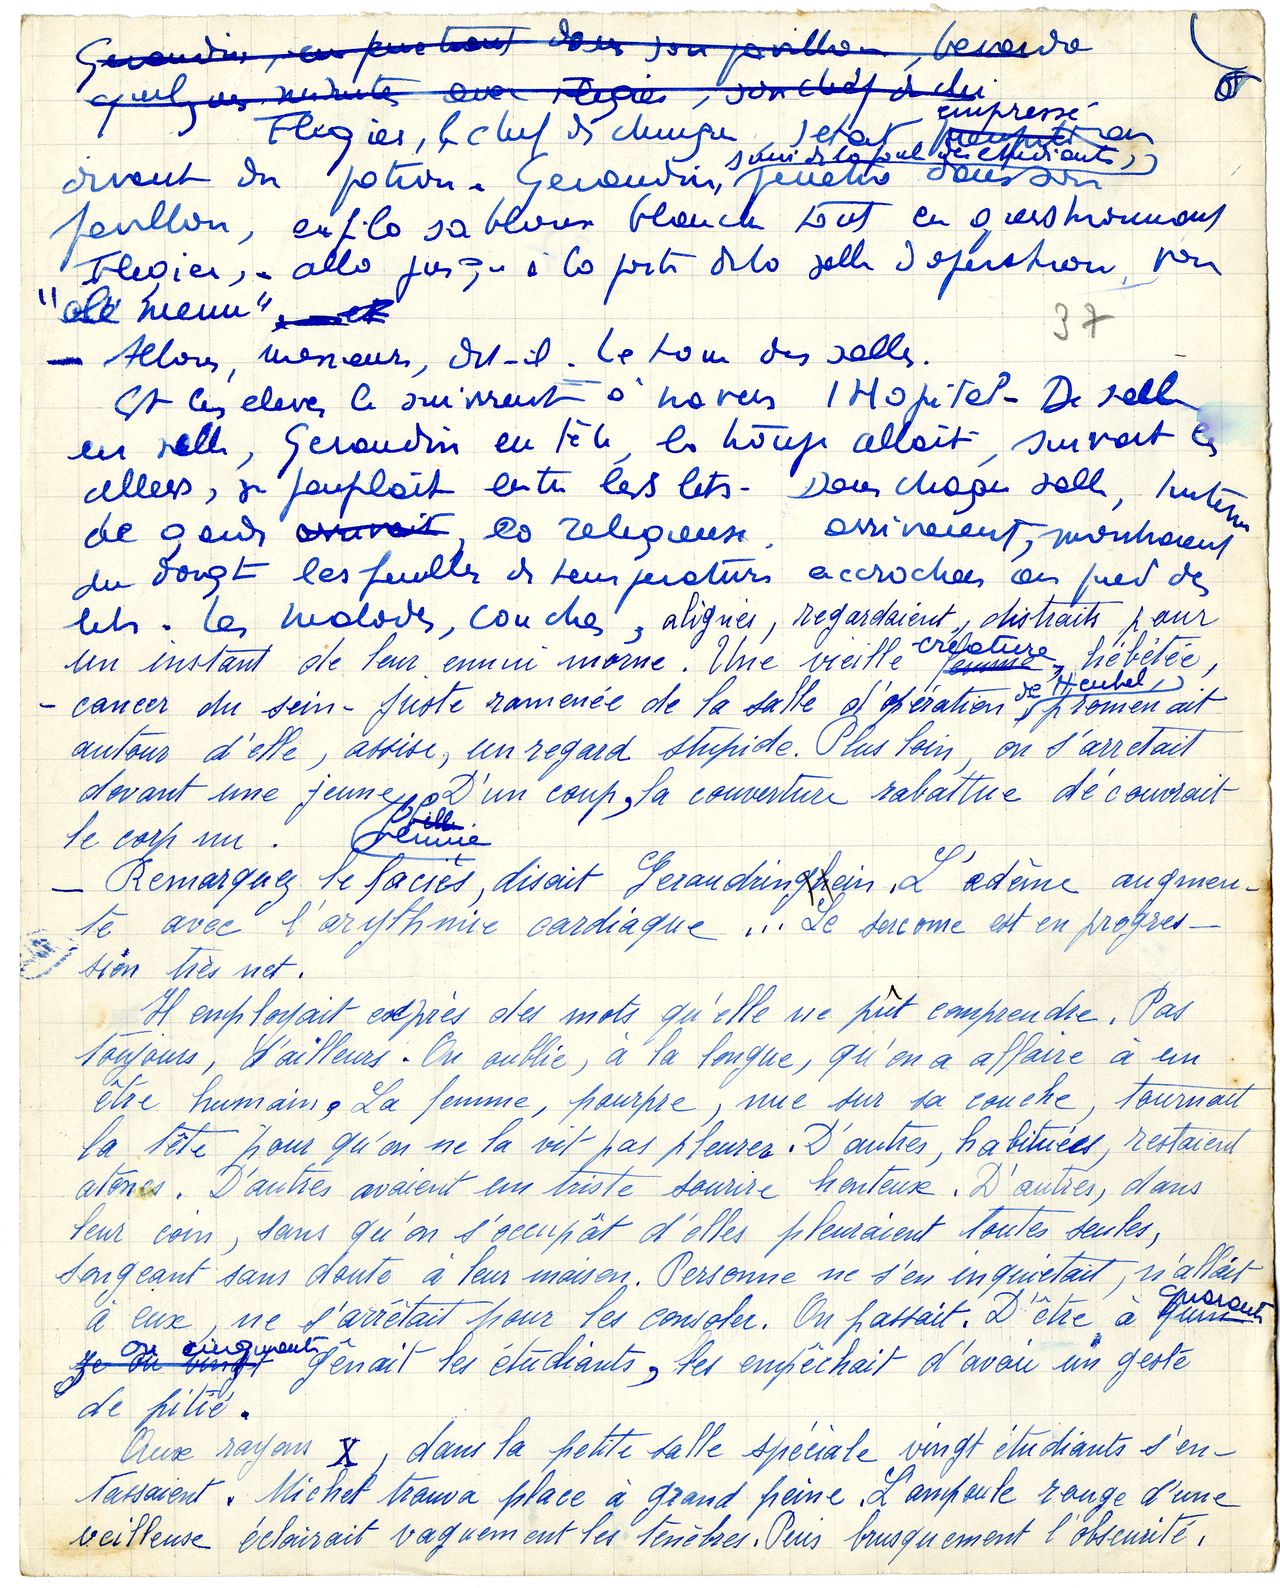 Geraudin, en pénétrant dans son pavillon, bavarda
quelques minutes avec Flegier, son chef de cli
empressé
Flegier, le chef de clinique s'était au
suivi de la foule des étudiants,
devant du patron. Geraudin, pénétra dans son
pavillon, enfila sa blouse blanche tout en questionnant
Flegier, alla jusqu'à la porte de la salle d'opération, voir
"le menu". et
— Allons, messieurs, dit-il. Le tour des salles.
Et les élèves le suivirent à travers l'Hôpital. De salle
en salle, Geraudin en tête, la troupe allait, suivait les
allées, se faufilait entre les lits. Dans chaque salle, l'interne
de garde arrivait, la religieuse, arrivaient, montraient
du doigt les feuilles de températures accrochées au pied des
lits. Les malades, couchés, alignés, regardaient, distraits pour
un instant de leur ennui morne. Une vieille créature femme, hébétée,
- cancer du sein - juste ramenée de la salle d'opération de Heubel, promenait
autour d'elle, assise, un regard stupide. Plus loin, on s'arretait
devant une jeune fille femme. D'un coup, la couverture rabattue découvrait
le corp nu.
— Remarquez le faciès, disait Geraudringhein. L'œdème augmen-
te avec l'arythmie cardiaque ... Le sarcome est en progres-
sion très net.
Il employait exprès des mots qu'elle ne pût comprendre. Pas
toujours, d'ailleurs. On oublie, à la longue, qu'on a affaire à un
être humain. La femme, pourpre, nue sur sa couche, tournait
la tête pour qu'on ne la vit pas pleurer. D'autres, habituées, restaient
atones. D'autres avaient un triste sourire honteux. D'autres, dans
leur coin, sans qu'on s'occupât d'elles pleuraient toutes seules,
songeant sans doute à leur maison. Personne ne s'en inquiétait, n'allait
à eux, ne s'arrêtait pour les consoler. On passait. D'être à quarante quin
ou cinquante
ze ou vingt gênait les étudiants, les empêchait d'avoir un geste
de pitié.
Aux rayons X, dans la petite salle spéciale vingt étudiants s'en-
tassaient. Michel trouva place à grand peine. L'ampoule rouge d'une
veilleuse éclairait vaguement les ténèbres. Puis brusquement l'obscurité.
37